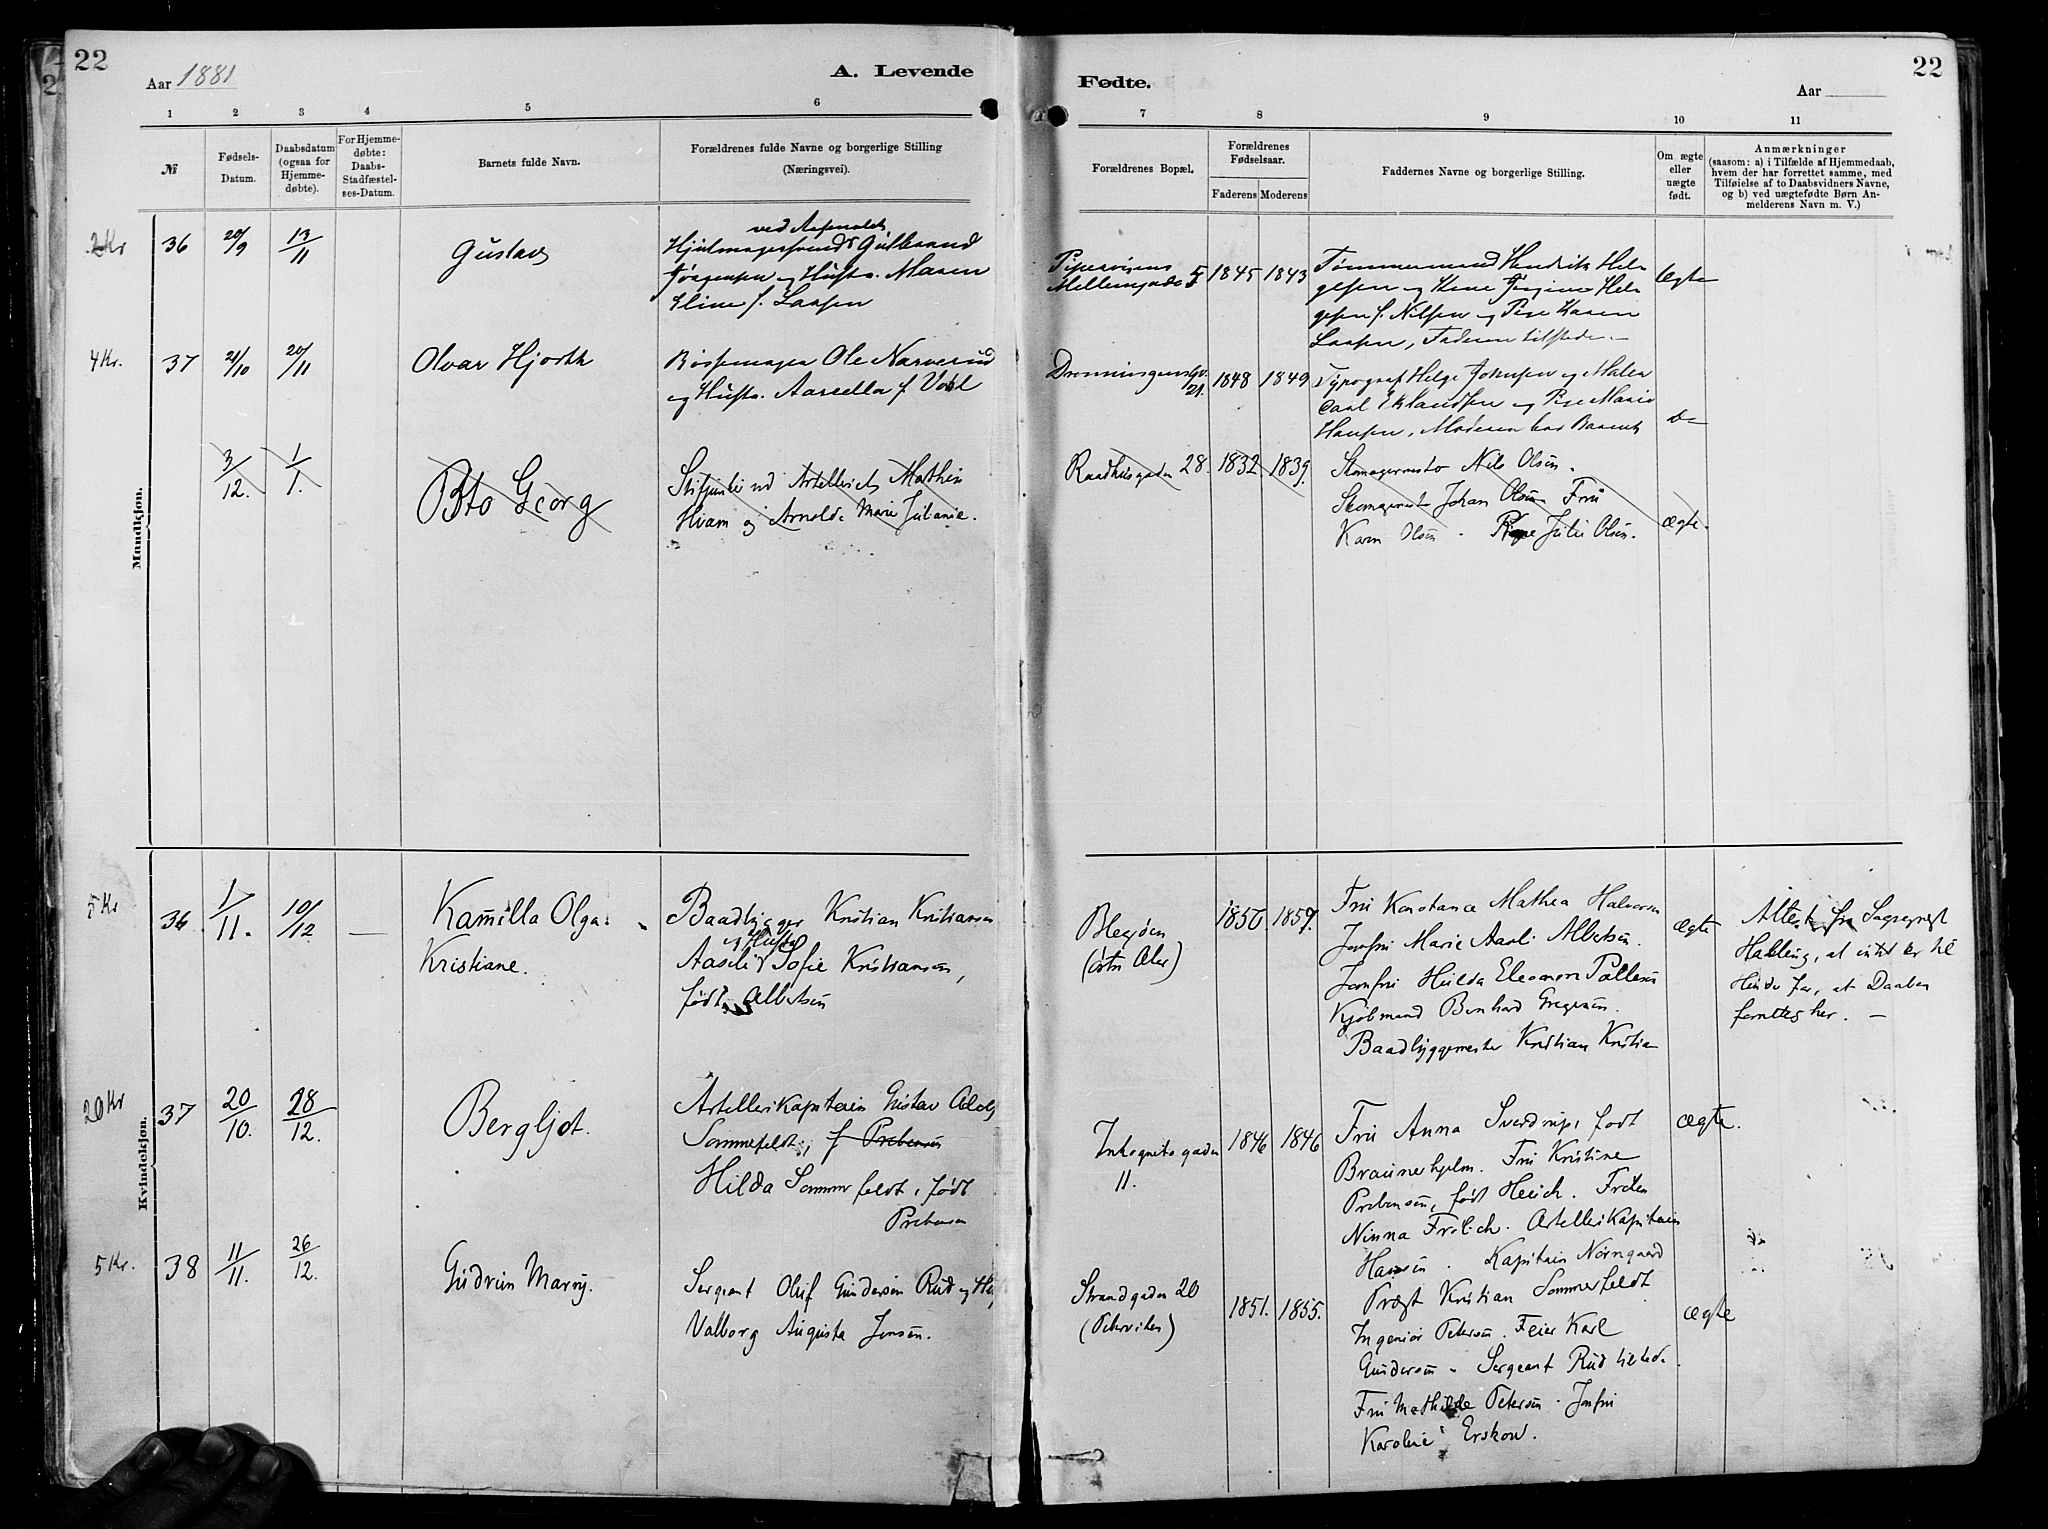 22
Aar 1881
A. Levende
Fødte.
Aar
22
1 2 3 4 5 6 7 8 9 10 11
№
Fødsels-
Datum.
Daabsdatum
(ogsaa for
Hjemme-
døbte).
For Hjemme-
døbte:
Daabs-
Stadfæstel-
ses-Datum.
Barnets fulde Navn.
Forældrenes fulde Navne og borgerlige Stilling
(Næringsvei).
Forældrenes Bopæl.
Forældrenes
Fødselsaar.
Faderens Moderens
Faddernes Navne og borgerlige Stilling.
Om ægte
eller
uægte
født.
Anmærkninger
(saasom: a) i Tilfælde af Hjemmedaab,
hvem der har forrettet samme, med
Tilføielse af to Daabsvidners Navne,
og b) ved uægtefødte Børn An-
melderens Navn m. V.)
Mandkjøn.
2 Kr
36
20/9
13/11
Gustav
ved
Hjulmagersvend Gulbrand
Jørgensen og Hustr. Maren
Laasen
Pipervigens
Mellemgade 5
1845
1843
Tømmermand Hendrik Hel-
gesen og Kone Jørgine Hel-
gesen f. Nilsen og Pige Karen
Laasen, Faderen tilstede.
Ægte
4 Kr.
37
21/10
20/11
Olvar Hjorth
Bøssemager Ole Narverud
og Hustr. Marcella f. Vold
Dronningens Gd.
21.
1848
1849
Typograf Helge Johnsen og Maler
Carl Eklandsen og Pige Marie
Hansen, Moderen bar Barnet
do
3/12.
1/1.
Otto Georg
ved Artelleriet Mathias
Hvam og Arnolda Marie Juliane.
Raadhusgaden 28.
1832
1839.
Skomagermester Nils Olsen.
Skomagermester Johan Olsen Fru
Karen Olsen. Pige Julie Olsen.
ægte.
Kvindekjøn.
5 Kr
36
1/11.
10/12
—
Kamilla Olga
Kristiane.
Baadbygger Kristian Kristiansen
og Hustr
Sofie Kristiansen,
født Albetsen
Blegøen
(østre Aker)
1856.
1859.
Fru Konstance Mathea Halvorsen
Jomfru Marie Aasli Albetsen.
Jomfru Hulda Eleonore Pallesen
Kjøbmand Bernhard Gregersen.
Baadbyggemester Kristian Kristian
Ægte
Attest fra Sognepræst
Halling, at intet er til
Hinder for, at Daaben
forrettes her. —
20 Kr
37
20/10.
28/12.
Bergljot.
Artellerikaptein Gustav Adolf
Sommerfeldt, f Prebensen
Hilda Sommerfeldt, født
Prebensen
Inkognitogaden
11.
1846
1846
Fru Anna Sverdrup, født
Braunerhjelm. Fru Kristine
Prebensen, født Heich. Frøken
Ninna Frølich. Artellerikaptein
Hansen. Kaptein Nørregaard
Prøgt Kristian Sommerfeldt
ægte.
5 Kr.
38
11/11.
26/12.
Gudrun Marry.
Sergeant Oluf Gundersen Rud og Hu
Valborg Augusta Jensen.
Strandgaden 20
(Pebervikен)
1851.
1855.
Ingeniør Petersen. Feier Karl
Gundersen. Sergeant Rud tilstede.
Fru Mathilde Petersen. Jomfru
Karoline Erskow.
ægte